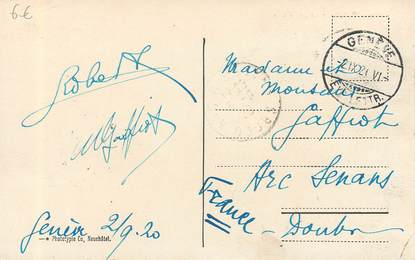 6 €
Robert
M Gaffiot
Genève 2/9.20
Phototypie Co, Neuchâtel.
GENÈVE
Madame et
Monsieur
Gaffiot
Arc Senans
France
Doubs